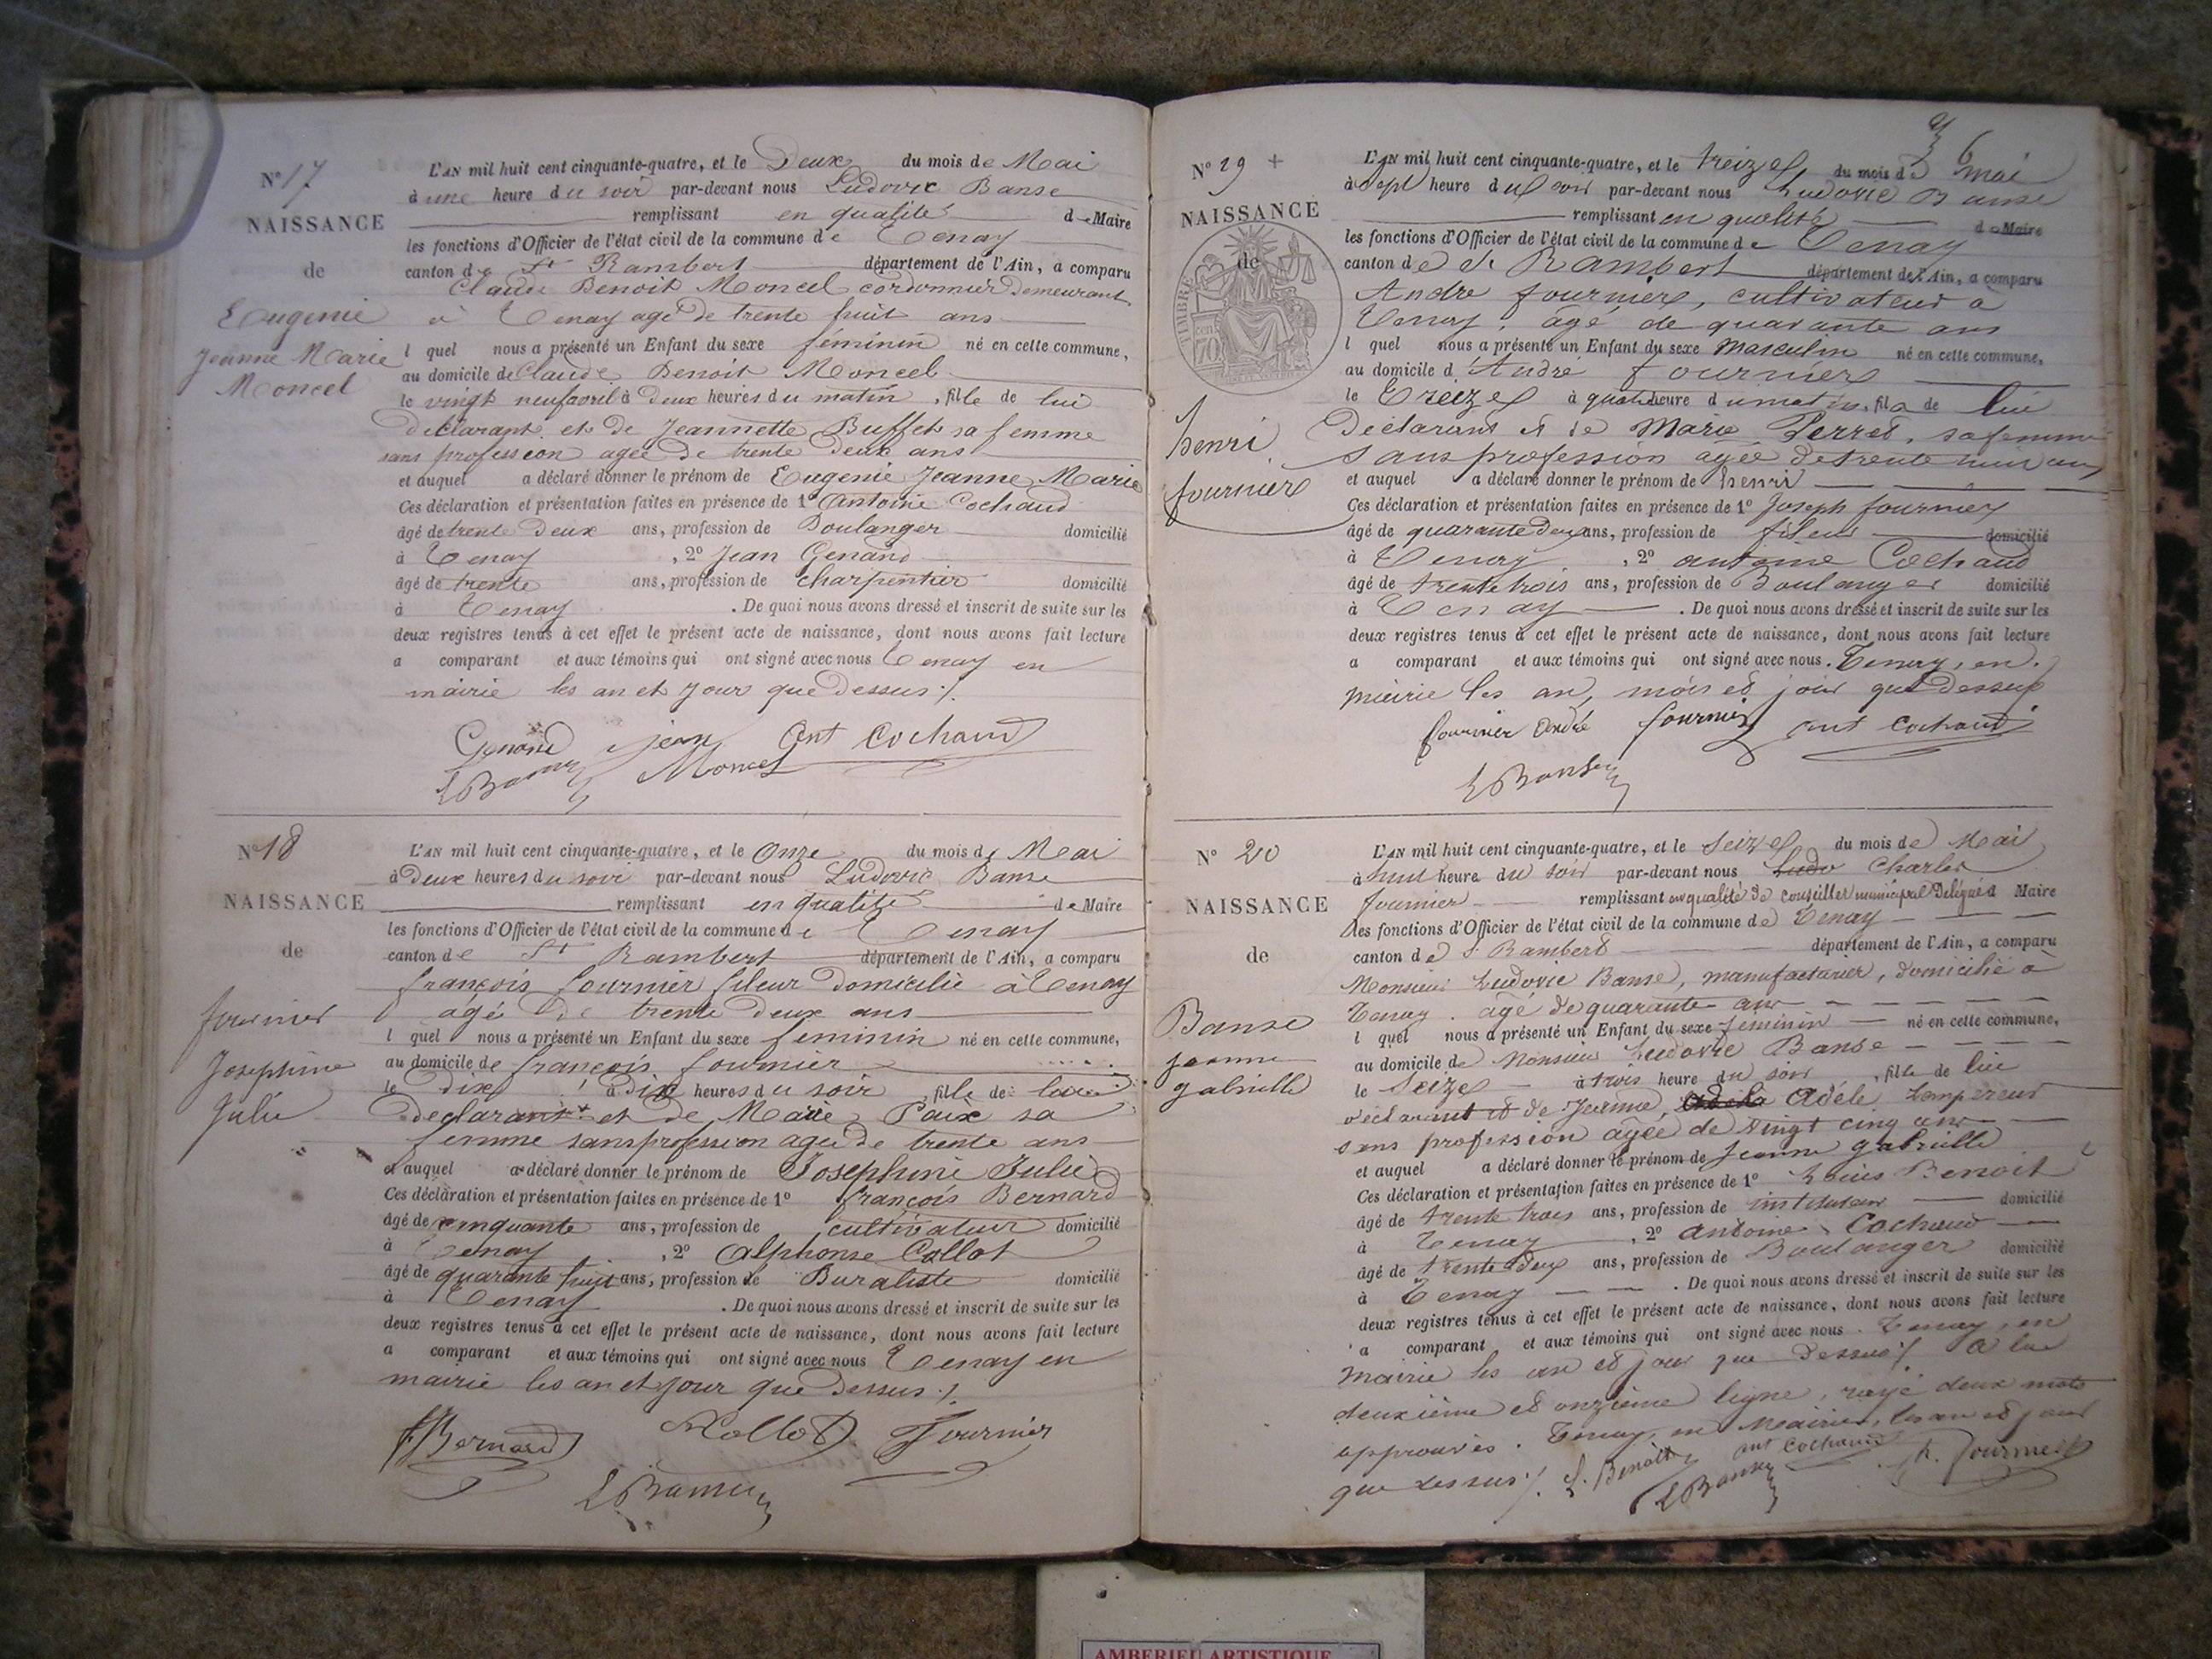 N° 17
NAISSANCE
de
Eugenie
Jeanne Marie
Moncel
L'AN mil huit cent cinquante-quatre, et le Deux du mois de Mai
à une heure du soir par-devant nous Ludovic Banse
remplissant en qualité de Maire
les fonctions d'Officier de l'état civil de la commune de Tenay
canton de St Rambert département de l'Ain, a comparu
Claude Benoit Moncel cordonnier demeurant
à Tenay agé de trente huit ans
l quel nous a présenté un Enfant du sexe féminin né en cette commune,
au domicile de Claude Benoit Moncel
le vingt neuf avril à Deux heures du matin, fille de lui
déclarant et de Jeannette Buffet sa femme
sans profession agée de trente Deux ans
et auquel a déclaré donner le prénom de Eugenie Jeanne Marie
Ces déclaration et présentation faites en présence de 1° Antoine Cochaud
âgé de trente Deux ans, profession de Boulanger domicilié
à Tenay, 2° Jean Genand
âgé de trente ans, profession de charpentier domicilié
à Tenay. De quoi nous avons dressé et inscrit de suite sur les
deux registres tenus à cet effet le présent acte de naissance, dont nous avons fait lecture
a comparant et aux témoins qui ont signé avec nous Tenay en
mairie les an et jour que Dessus ./.
Genand jean Ant Cochaud
LBanse Moncel
N° 18
NAISSANCE
de
fournier
Josephine
Julie
L'AN mil huit cent cinquante-quatre, et le Onze du mois de Mai
à Deux heures du soir par-devant nous Ludovic Banse
remplissant en qualité de Maire
les fonctions d'Officier de l'état civil de la commune de Tenay
canton de St Rambert département de l'Ain, a comparu
françois fournier fileur domicilié à Tenay
âgé de trente deux ans
l quel nous a présenté un Enfant du sexe feminin né en cette commune,
au domicile de françois fournier
le dix à Dix heures du soir, fille de lui
déclarant et de Marie Paix sa
femme sans profession agée de trente ans
et auquel a déclaré donner le prénom de Josephine Julie
Ces déclaration et présentation faites en présence de 1° françois Bernard
âgé de cinquante ans, profession de cultivateur domicilié
à Tenay, 2° Alphonse Collot
âgé de quarante huit ans, profession de Buraliste domicilié
à Tenay. De quoi nous avons dressé et inscrit de suite sur les
deux registres tenus à cet effet le présent acte de naissance, dont nous avons fait lecture
a comparant et aux témoins qui ont signé avec nous Tenay en
mairie les an et jour que Dessus ./.
FBernard ACollot Fournier
LBanse
6
N° 19 +
NAISSANCE
de
TIMBRE
70
henri
fournier
L'AN mil huit cent cinquante-quatre, et le treize du mois de mai
à sept heure du soir par-devant nous Ludovic Banse
remplissant en qualité de Maire
les fonctions d'Officier de l'état civil de la commune de Tenay
canton de St Rambert département de l'Ain, a comparu
André fournier, cultivateur à
Tenay, âgé de quarante ans
l quel nous a présenté un Enfant du sexe Masculin né en cette commune,
au domicile d'André fournier
le treize à quatre heure du matin, fils de lui
Déclarant et de Marie Perret, sa femme
sans profession agée de trente huit ans
et auquel a déclaré donner le prénom de henri
Ces déclaration et présentation faites en présence de 1° Joseph fournier
âgé de quarante deux ans, profession de fileur domicilié
à Tenay, 2° antoine Cochaud
âgé de trente trois ans, profession de Boulanger domicilié
à Tenay. De quoi nous avons dressé et inscrit de suite sur les
deux registres tenus à cet effet le présent acte de naissance, dont nous avons fait lecture
a comparant et aux témoins qui ont signé avec nous. Tenay, en
mairie les an, mois et jour que dessus
fournier André fournier ant Cochaud
LBanse
N° 20
NAISSANCE
de
Banse
jeanne
gabrielle
L'AN mil huit cent cinquante-quatre, et le Seize du mois de Mai
à huit heure du soir par-devant nous Ludo Charles
fournier remplissant en qualité de conseiller municipal Délégué d Maire
les fonctions d'Officier de l'état civil de la commune de Tenay
canton de St Rambert département de l'Ain, a comparu
Monsieur Ludovic Banse, manufacturier, domicilié à
Tenay. âgé de quarante ans
l quel nous a présenté un Enfant du sexe feminin né en cette commune,
au domicile de Monsieur Ludovic Banse
le Seize à trois heure du soir, fille de lui
déclarant et de Jeanne, Adèle Lempereur
sans profession agée de vingt cinq ans
et auquel a déclaré donner le prénom de Jeanne gabrielle
Ces déclaration et présentation faites en présence de 1° Louis Benoit
âgé de trente trois ans, profession de instituteur domicilié
à Tenay, 2° antoine Cochaud
âgé de trente deux ans, profession de Boulanger domicilié
à Tenay. De quoi nous avons dressé et inscrit de suite sur les
deux registres tenus à cet effet le présent acte de naissance, dont nous avons fait lecture
a comparant et aux témoins qui ont signé avec nous. Tenay, en
mairie les an et jour que dessus ./. a la
deuxième et onzième ligne, rayé deux mots
approuvés. Tenay, en Mairie, les an et jour
que dessus ./. L. Benoit ant Cochaud
LBanse Ch. Fournier
AMBERIEU ARTISTIQUE